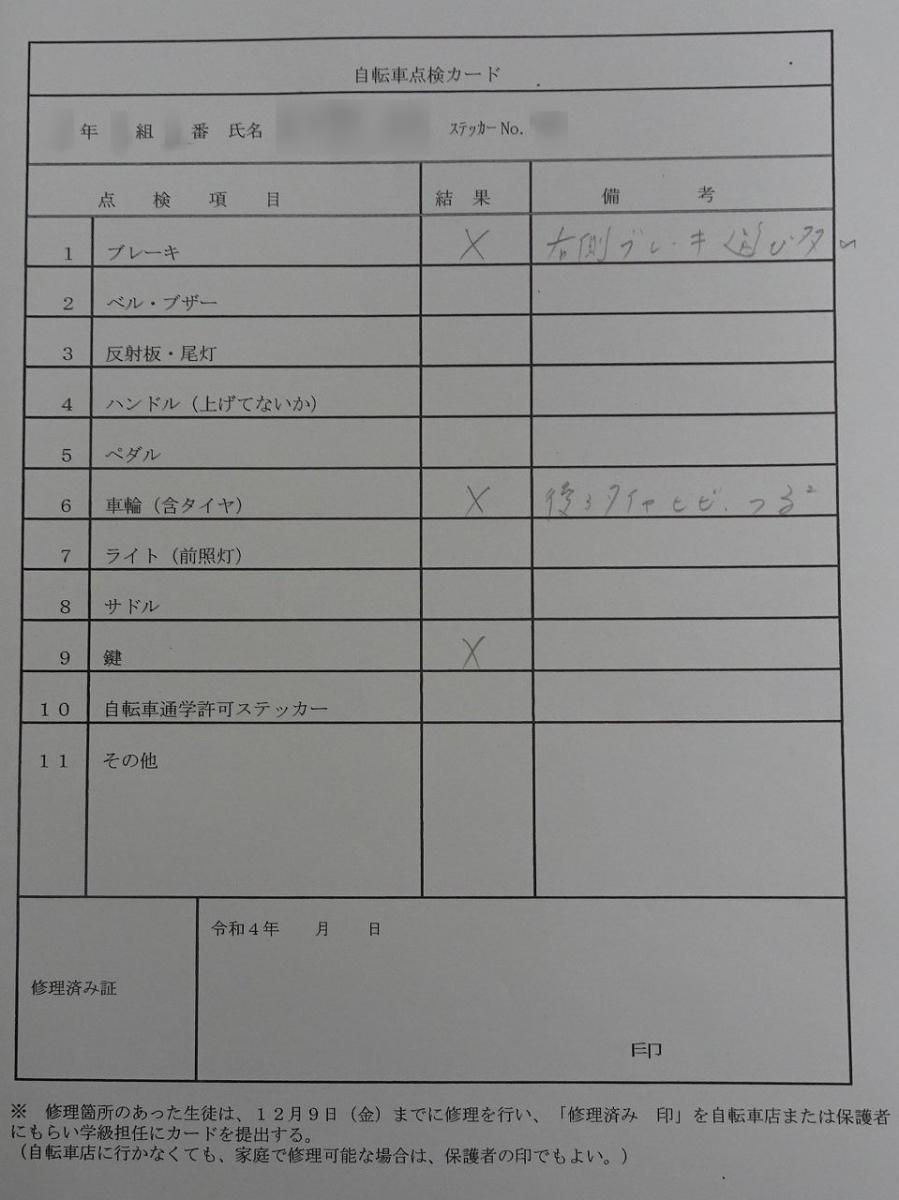 自転車点検カード
年 組 番 氏名 ステッカーNo.
点検項目 結果 備考
1 ブレーキ X 右側ブレーキ遊び多い
2 ベル・ブザー
3 反射板・尾灯
4 ハンドル（上げてないか）
5 ペダル
6 車輪（含タイヤ） X 後ろタイヤヒビ.つる
7 ライト（前照灯）
8 サドル
9 鍵 X
10 自転車通学許可ステッカー
11 その他
令和４年 月 日
修理済み証
印
※ 修理箇所のあった生徒は、１２月９日（金）までに修理を行い、「修理済み 印」を自転車店または保護者
にもらい学級担任にカードを提出する。
（自転車店に行かなくても、家庭で修理可能な場合は、保護者の印でもよい。）